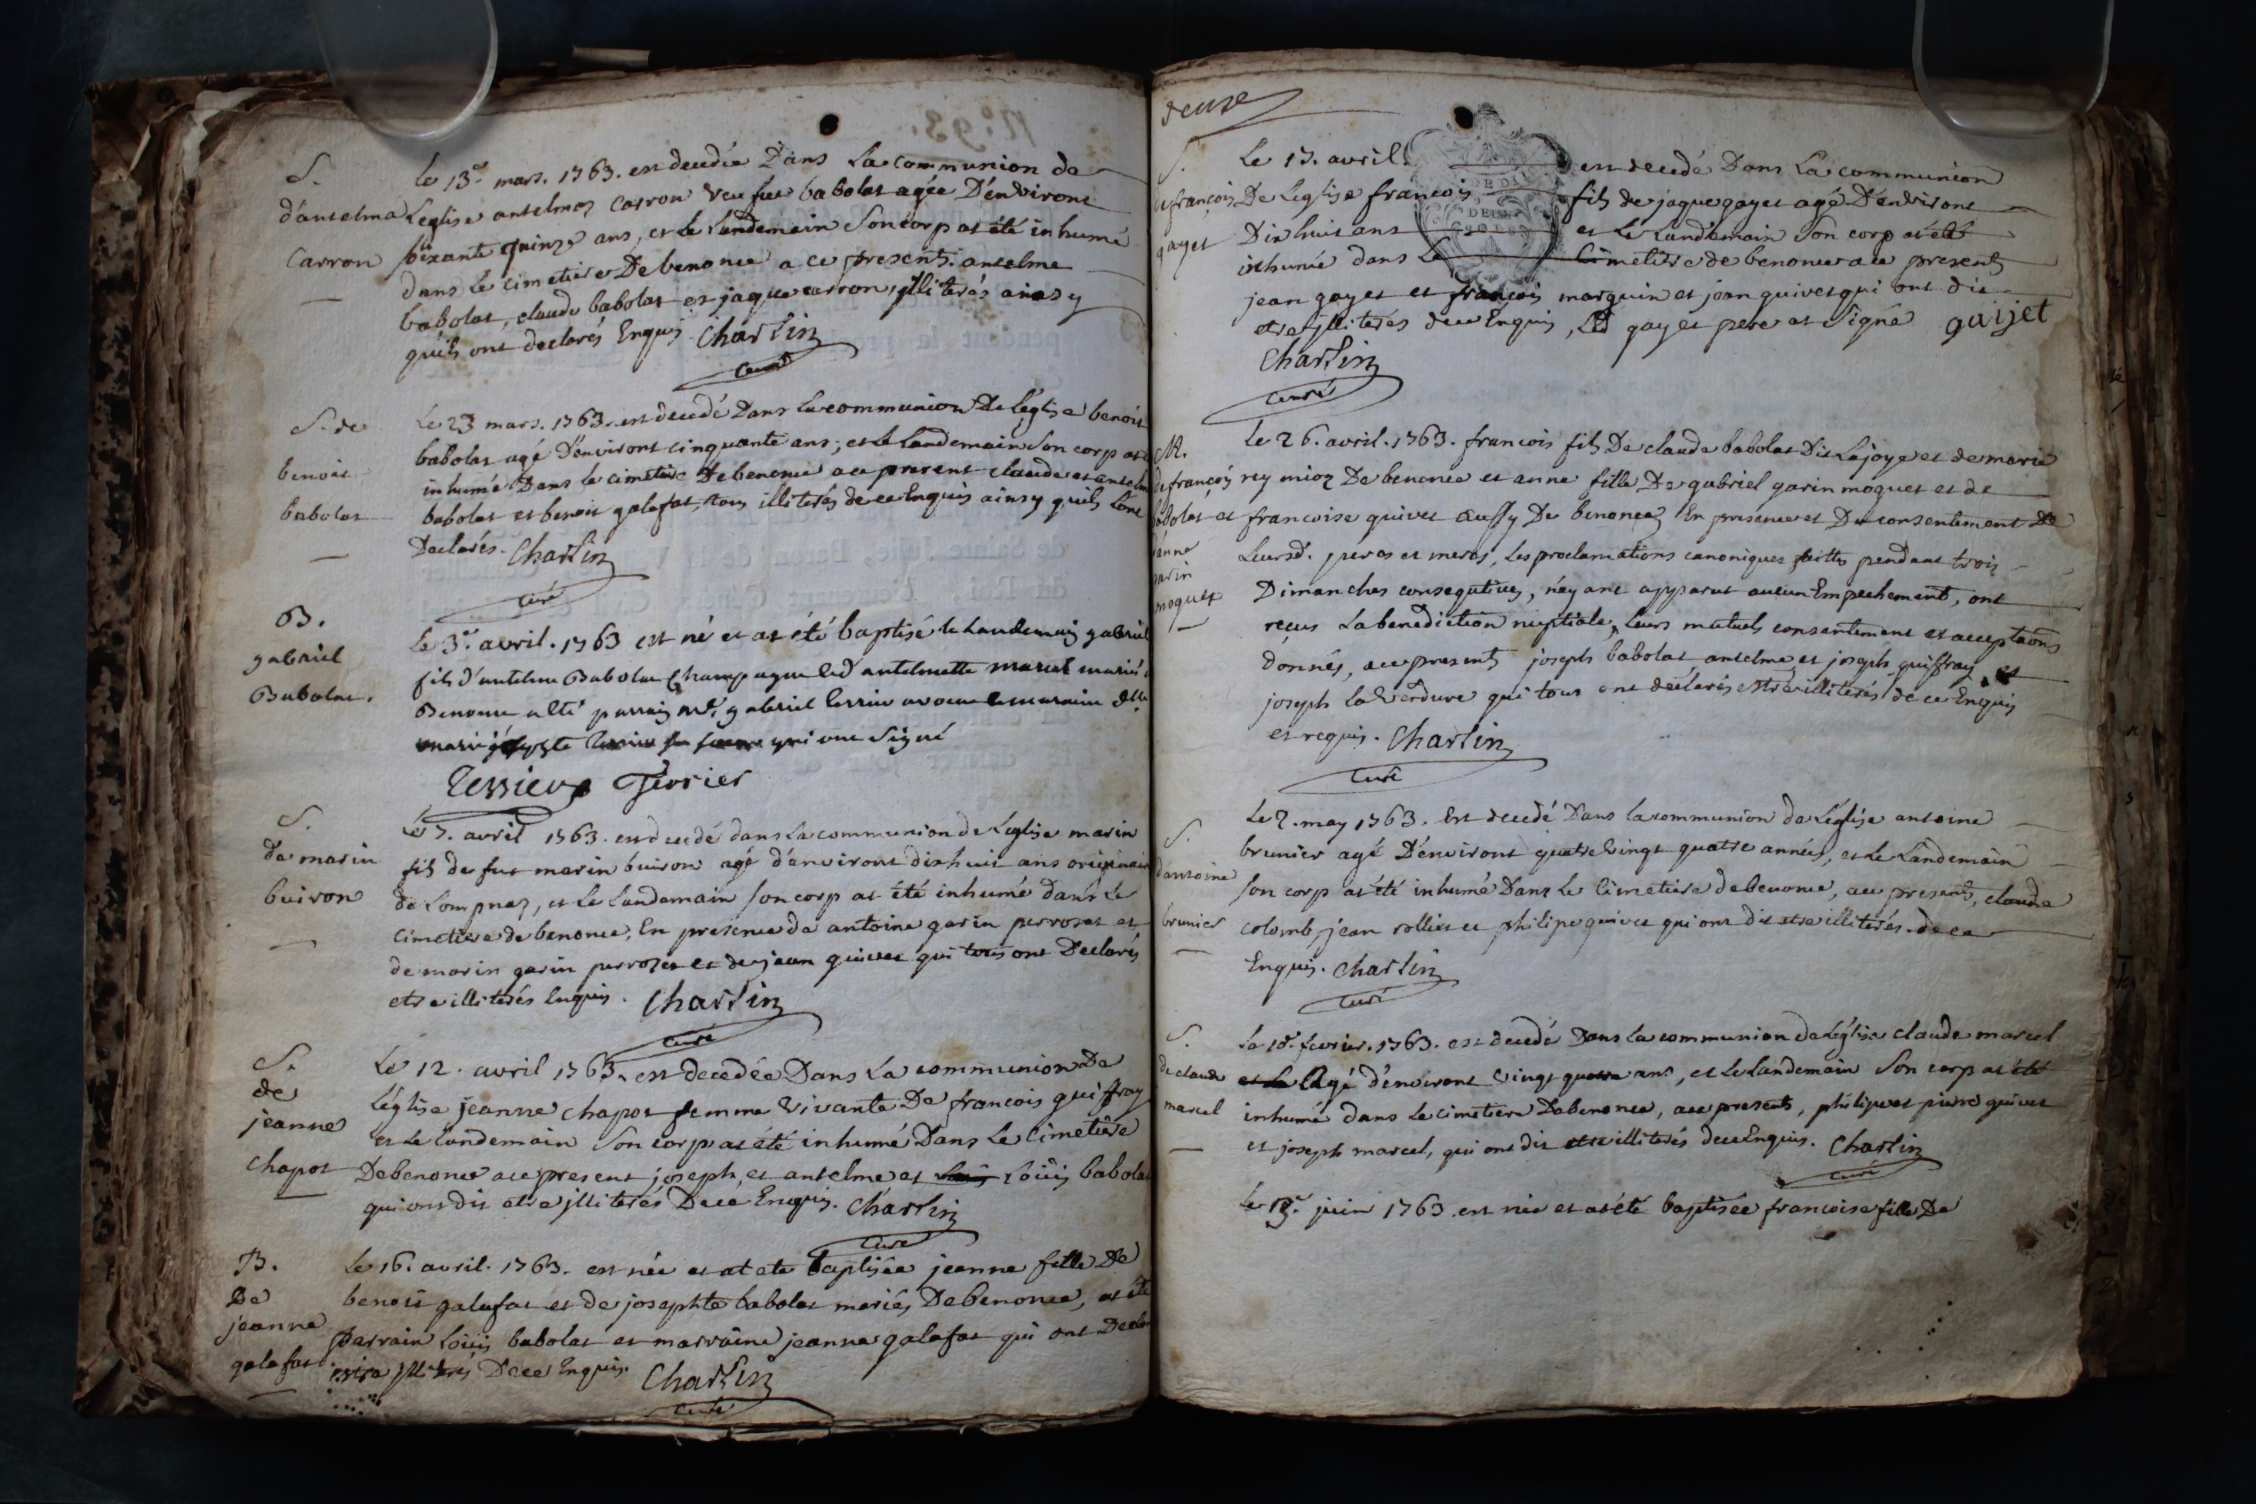 S.
d'antelma
Carron
le 13e mars. 1763. est decedée Dans La communion de
Leglise antelmez Carron veufue babolat agée D'environt
soixante quinze ans, et le Landemain Son corp at été inhumé
dans le cimetiere De benonce a ce present. antelme
babolat, claude babolat et jaque carron, jlliterés ainsy
qu'ils ont declarés Enquis. Charlin
curé
S. de
benoit
babolat
Le 23 mars. 1763. est decedé Dans La communion De léglise benoit
babolat agé D'environt cinquante ans; et le Landemain Son corp at été
inhumé Dans le cimetiere De benonce a ce present claude et antelme
babolat et benoit galafat, tous illiterés de ce Enquis ainsy quils l'ont
Declarés. Charlin
curé
B.
gabriel
Babolat.
Le 3e. avril. 1763 est né et at été baptisé le landemain gabriel
fils d'antelme Babolat Champagne et d'antelmette marcel mariés
Benonce a été parrain mr. gabriel
qui ont Signé
Tessier
S.
de marin
buiron
Le 7. avril 1763. est decedé dans La communion de Leglise marin
fils de fut marin buiron agé d'environt dixhuit ans originaire
de Lompnaz, et le Landemain son corp at été inhumé dans le
cimetiere de benonce, En presence de antoine garin perrozet et
de marin garin perrozet et de jean quivet qui tous ont Declarés
etre illiterés Enquis. Charlin
curé
S.
de
jeanne
Chapot
Le 12. avril 1763. est decedée Dans La communion De
l'église jeanne chapot femme vivante De francois guiffray
et Le landemain Son corp at été inhumé Dans Le Cimetiere
De benonce a ce present joseph, et antelme et Loüis babolat
qui ont dit etre jlliterés De ce Enquis. Charlin
curé
B.
De
jeanne
galafat
Le 16. avril. 1763. est née et at eté baptisée jeanne fille De
benoit galafat et de josephte babolat mariés De benonce, at été
parrain Loüis babolat et marraine jeanne galafat qui ont
jlliterés De ce Enquis. Charlin
curé
deuxe
S.
de françois
gayet
Le 17. avril. est decedé Dans La communion
De Leglise francois fils de jaque gayet agé D'environt
Dixhuit ans et Le Landemain Son corp at été
inhumé dans Le Cimetiere de benonce a ce present
jean gayet et françois marquin et jean quivet qui ont dit
etre jlliterés de ce Enquis, gayet pere at Signé gaijet
Charlin
curé
M.
de françois
babolat et
d'anne
garin
moquet
Le 26. avril. 1763. francois fils De claude babolat Dit Lajoye et de marie
rey mioz De benonce et anne fille De gabriel garin moquet et de
francoise quivet aussy De benonce, En presence et Du consentement De
Leursd. peres et meres, Les proclamations canoniques faittes pendant trois
Dimanches consequtives, n'ayant apparut aucun Empechement, ont
recus La benediction nuptiale, Leurs mutuels consentement et acceptaons
données, a ce present joseph babolat, antelme et joseph guiffray et
joseph la verdure qui tous ont declarés etre illiterés de ce Enquis
et requis. Charlin
curé
S.
d'antoine
brunier
Le 2. may 1763. Est decedé Dans la communion de L'église antoine
brunier agé D'environt quatre vingt quatre années, et le Landemain
Son corp at été inhumé Dans le cimetiere de benonce, a ce present, claude
colomb, jean rollier et philipe quivet qui ont dit etre illiterés. de ce
Enquis. Charlin
curé
S.
de claude
marcel
Le 18. fevrier. 1763. est decedé Dans La communion de L'église claude marcel
et Le agé d'environt vingt quatre ans, et Le Landemain Son corp at été
inhumé dans le cimetiere De benonce, a ce present, philipe et pierre quivet
et joseph marcel, qui ont dit etre illiterés de ce Enquis. Charlin
curé
juin 1763 est née et at été baptisée francoise fille De